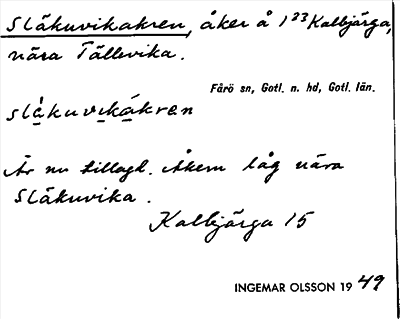 Släkuvikakren, åker å 1²³ Kalbjärga,
nära Tällevika.
Fårö sn, Gotl. n. hd, Gotl. län.
släkuvikåkren
Är nu tillagd. Åkern låg nära
Släkuvika.
Kalbjärga 15
INGEMAR OLSSON 19 49